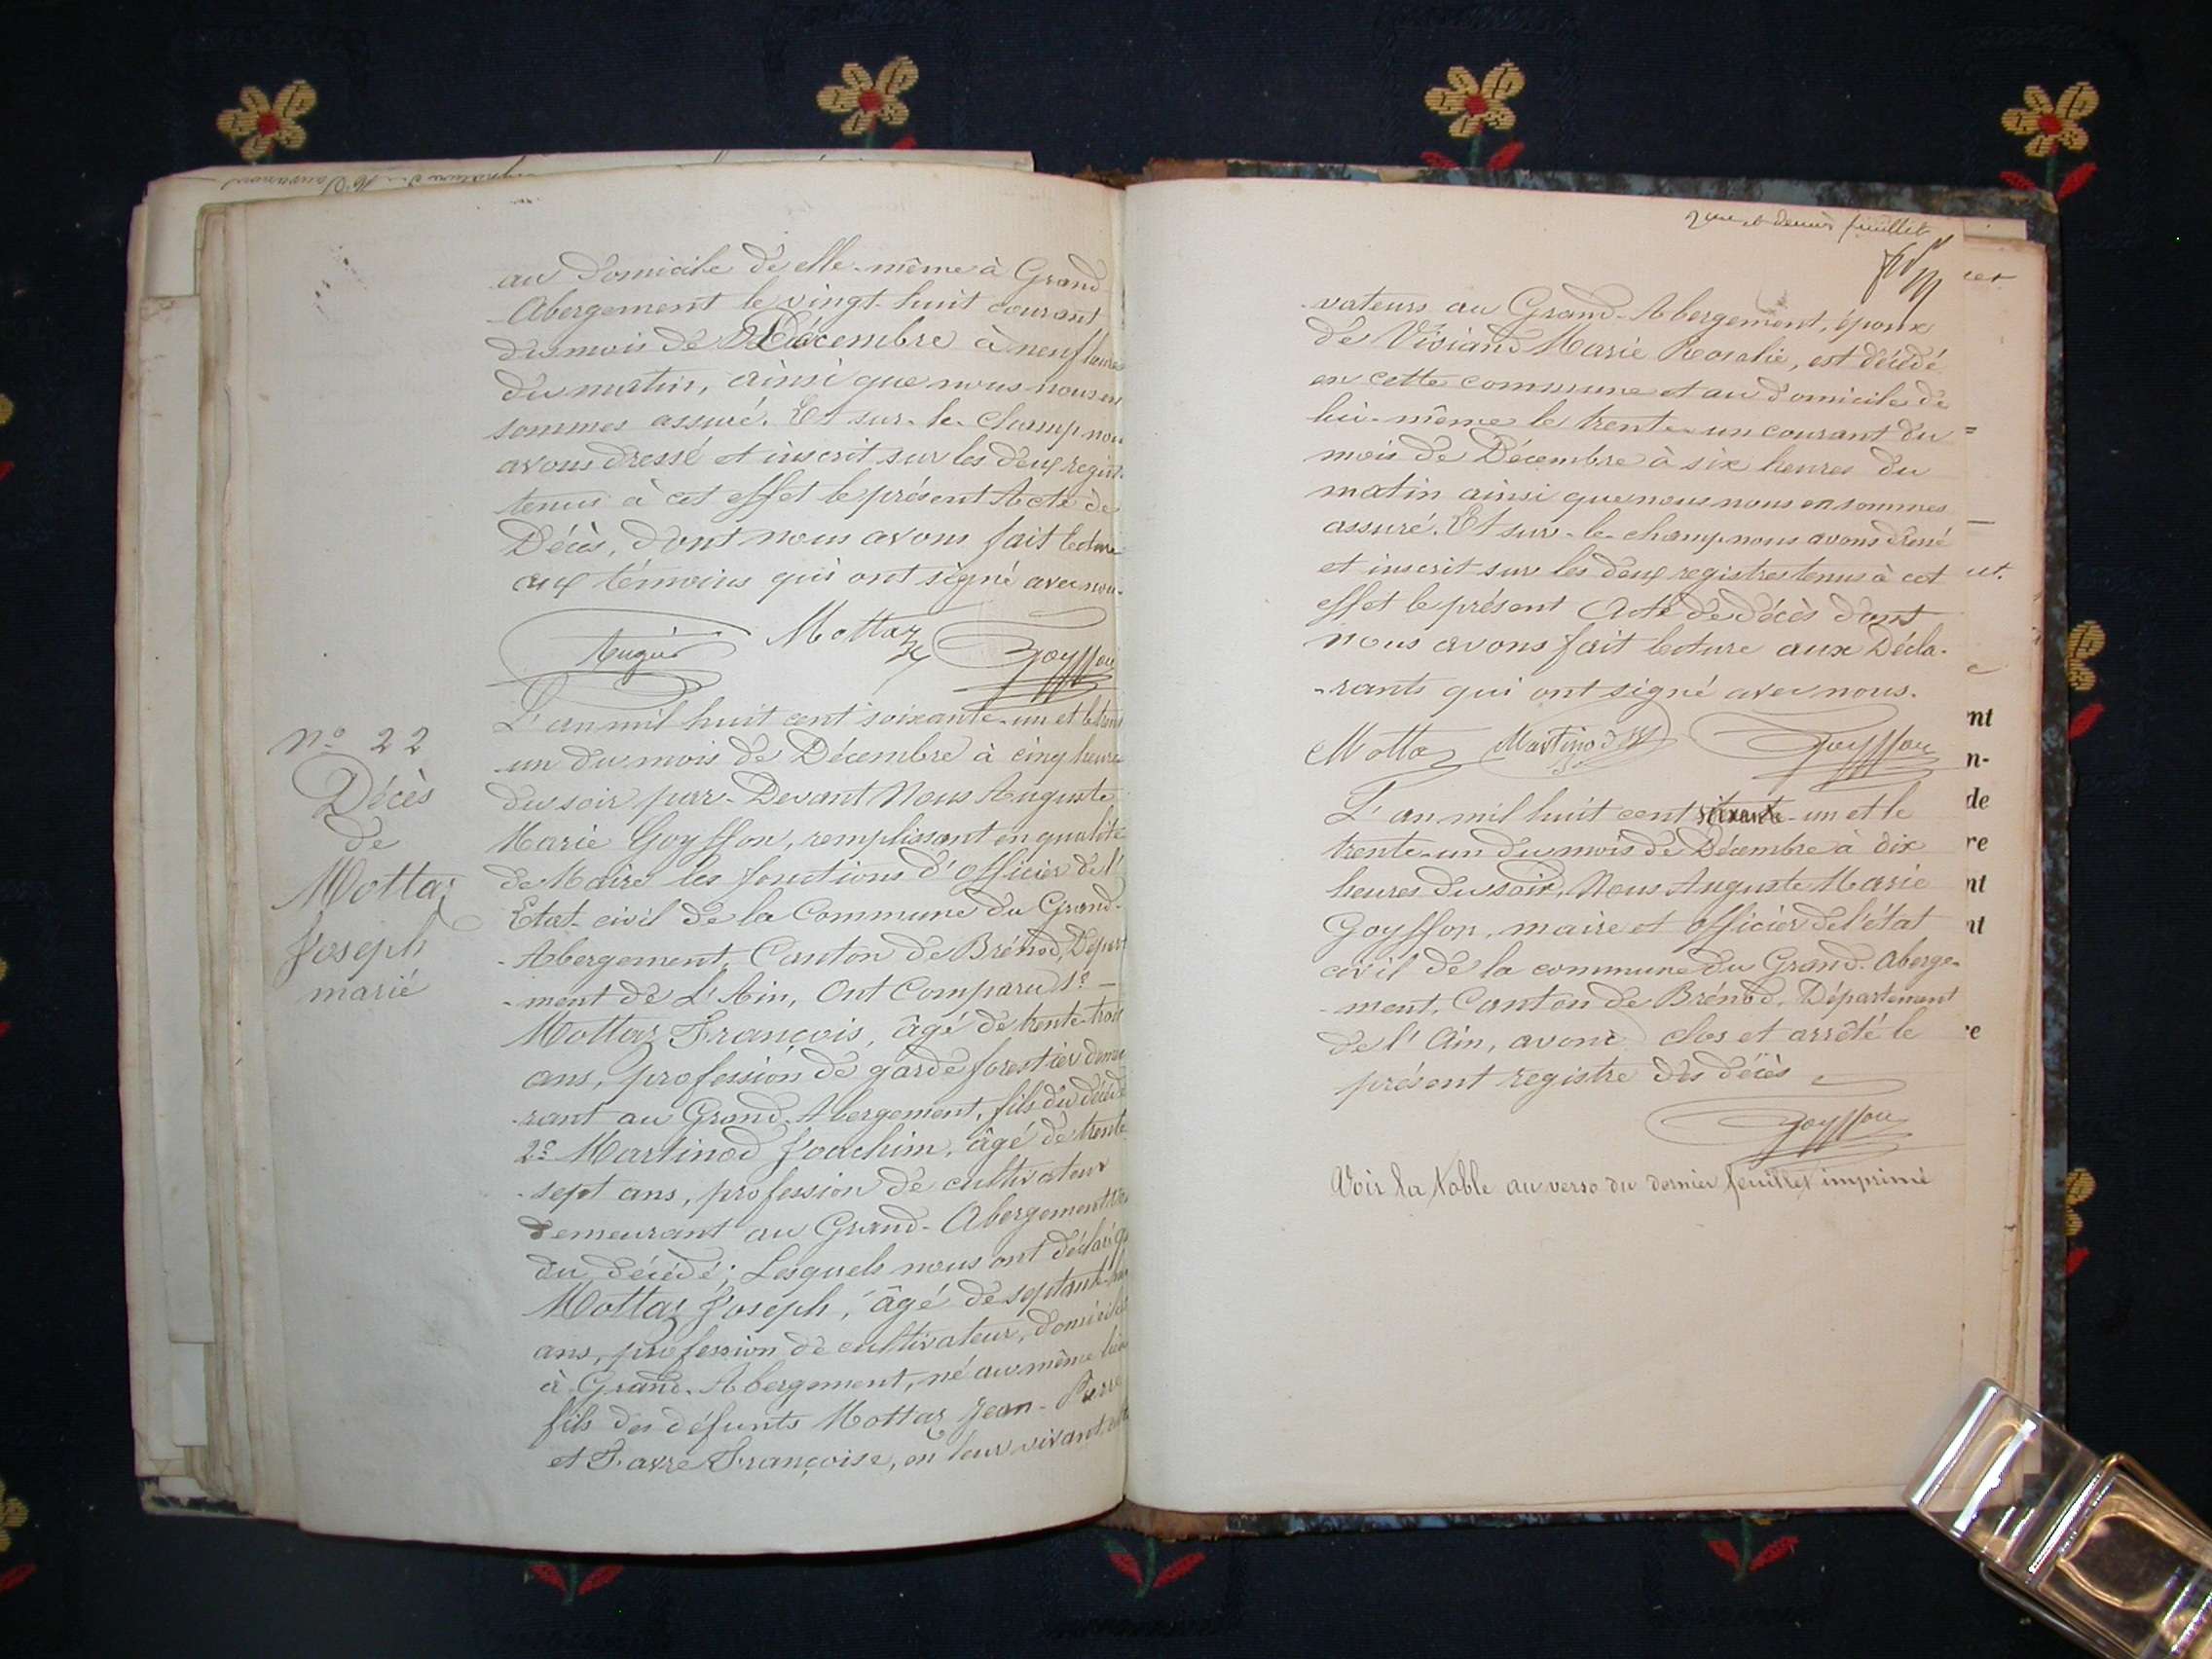 au Domicile de elle-même à Grand
Abergement le vingt-huit courant
du mois de Décembre à neuf heures
du matin, ainsi que nous nous en
sommes assuré. Et sur-le-champ nous
avons dressé et inscrit sur les deux regist.
tenus à cet effet le présent Acte de
Décès, dont nous avons fait lecture
aux témoins qui ont signé avec nous
Mottaz Goyffon
N° 22
Décès
de
Mottaz
Joseph
marié
L'an mil huit cent soixante-un et le trente
un du mois de Décembre à cinq heures
du soir par-Devant Nous Auguste
Marie Goyffon, remplissant en qualité
de Maire les fonctions d'Officier de l'
Etat-civil de la Commune du Grand-
Abergement, Canton de Brénod, Départ
-ment de L'Ain, Ont Comparu 1°
Mottaz François, âgé de trente-trois
ans, profession de garde forestier demeu
-rant au Grand-Abergement, fils du décédé
2° Martinod Joachim, âgé de trente
-sept ans, profession de cultivateur
demeurant au Grand-Abergement
du décédé; Lesquels nous ont déclaré que
Mottaz Joseph, âgé de septante
ans, profession de cultivateur, domicilié
à Grand-Abergement, né au même lieu
fils des défunts Mottaz Jean-Pierre
et Favre Françoise, en leur vivant
2me et dernier feuillet
-vateurs au Grand-Abergement, époux
de Viviand Marie Rosalie, est décédé
en cette commune et au Domicile de
lui-même le trente-un courant du
mois de Décembre à six heures du
matin ainsi que nous nous en sommes
assuré. Et sur-le-champ nous avons dressé
et inscrit sur les deux registres tenus à cet
effet le présent Acte de décès dont
nous avons fait lecture aux Décla-
-rants qui ont signé avec nous.
Mottaz Martinod Goyffon
L'an mil huit cent soixante-un et le
trente-un du mois de Décembre à dix
heures du soir, Nous Auguste Marie
Goyffon, maire et officier de l'état
civil de la commune du Grand-Aberge-
-ment, Canton de Brénod, Département
de l'Ain, avons clos et arrêté le
présent registre des décès
Goyffon
Voir la table au verso du dernier feuillet imprimé
nt
n-
de
re
nt
nt
re